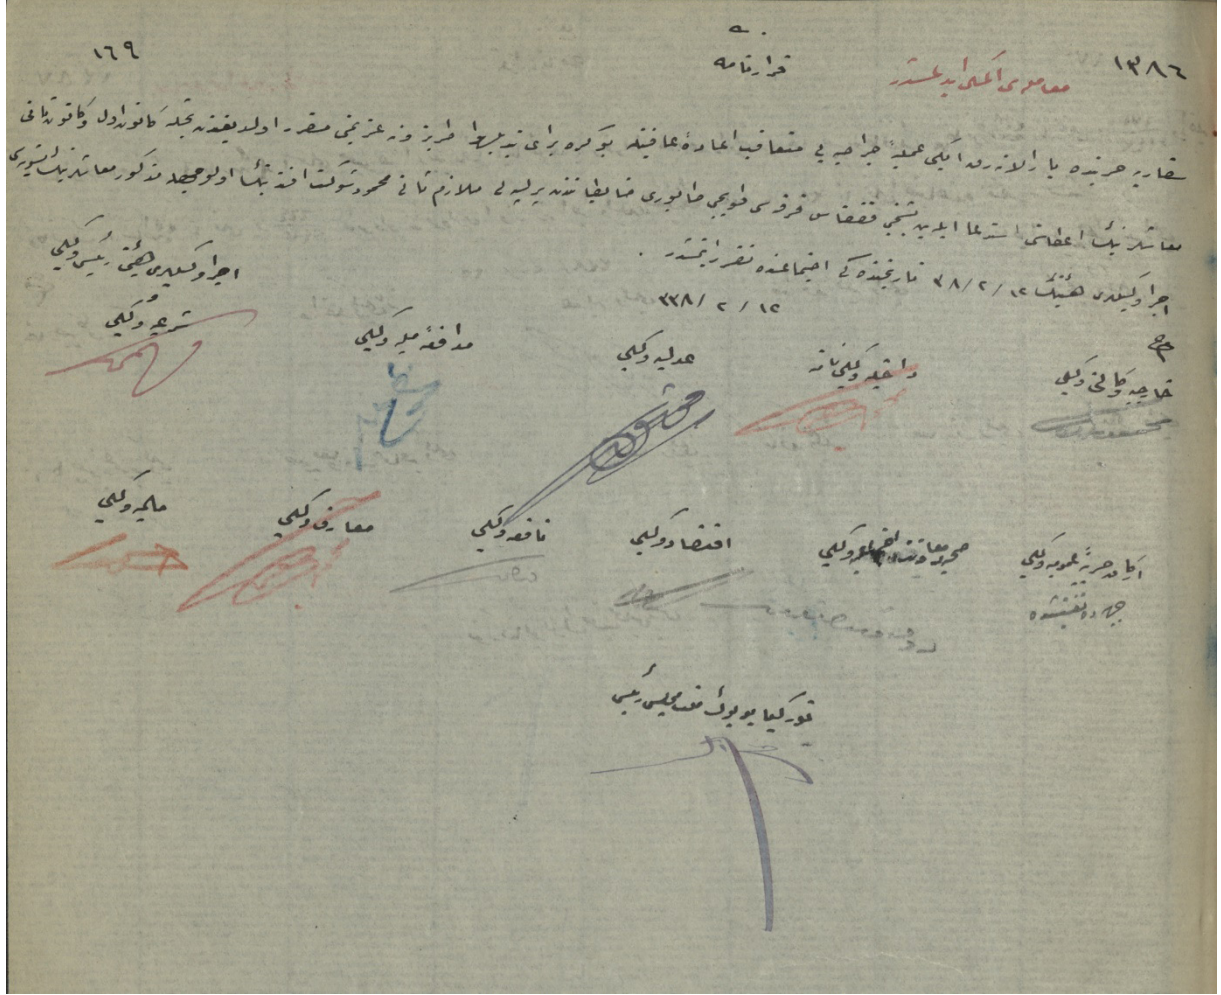 ١٣٨٦
١٦٩
قرارنامه
سقاریه حربنده یارالانه‌رق ایکی عملیهٔ جراحیه‌یی متعاقب اعادهٔ عافیتله بو کره برای تبدیل هوا طربزونه عزیمتی مقرر اولدیغندن کانون اول و کانون ثانی
معاشلرینك اعطاسنی استدعا ایدن بشنجی قفقاس فرقه‌سی طوپجی طابوری ضابطانندن ملازم ثانی محمود شوکت افندینك مذکور معاشلرینك
اجرا وکیللری هیئتنك ١٢/٢/٣٨ تاریخنده‌کی اجتماعنده تقرر ایتمشدر .
١٢/٢/٣٣٨
اجرا وکیللری هیئتی رئیسی وکیلی
شرعیه وکیلی
مدافعهٔ ملیه وکیلی
عدلیه وکیلی
داخلیه وکیلی نامنه
خارجیه وکالتی وکیلی
مالیه وکیلی
معارف وکیلی
نافعه وکیلی
اقتصاد وکیلی
صحیه و معاونت اجتماعیه وکیلی
ارکان حربیهٔ عمومیه وکیلی
جبهه‌ده تفتیشده
تورکیا بویوك ملت مجلسی رئیسی